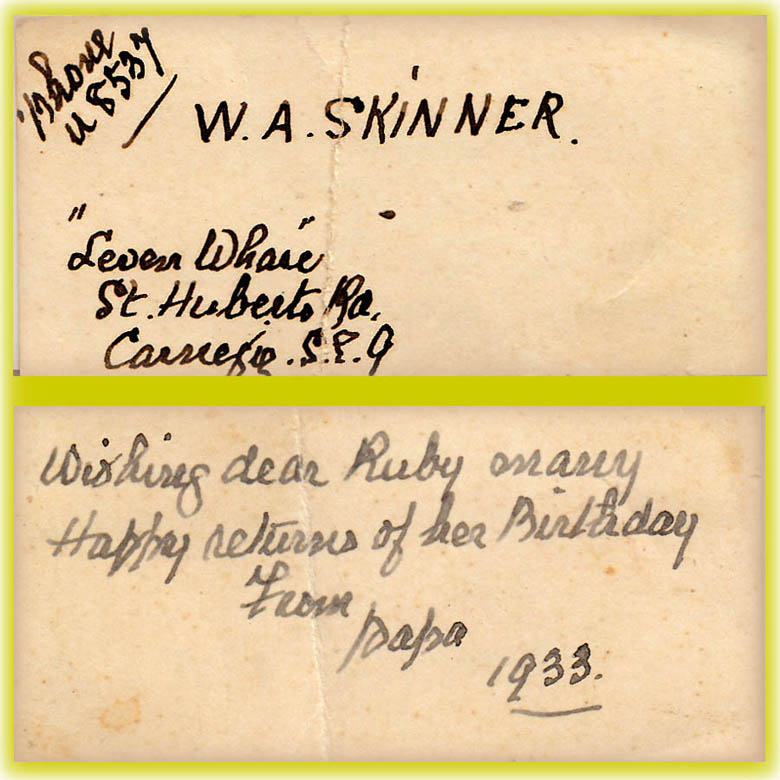 'Phone
U 8537
W. A. SKINNER.
"Leven Whare"
St. Huberts Rd.
Carnegie. S.E. 9
Wishing dear Ruby many
Happy returns of her Birthday
From
Papa
1933.